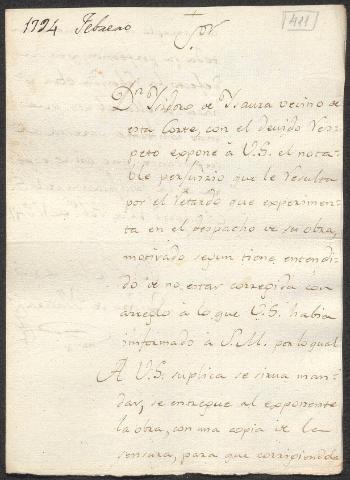 1794 Febrero
Sor.
411
Dn. Ysidro de Ysaura vecino de
esta Corte, con el devido res-
peto expone à V.S. el nota-
ble perjuizio que le resulta
por el retardo que experimen-
ta en el despacho de su obra,
motivado segun tiene entendi-
do de no estar corregida con
arreglo à lo que V.S. havia
informado à S.M. por lo qual
A V.S. suplica se sirva man-
dar, se entregue al exponente
la obra, con una copia de la
censura, para que corrigiendola